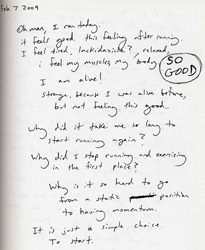 Feb 7 2009
Oh man, I ran today.
it feels good. this feeling after running
I feel tired, lackidaisie?, relaxed,
i feel my muscles my body.
SO GOOD
I am alive!
strange, because I was alive before,
but not feeling this good.
Why did it take me so long to
start running again?
Why did I stop running and exercising
in the first place?
Why is it so hard to go
from a static position
to having momentum.
It is just a simple choice.
To start.